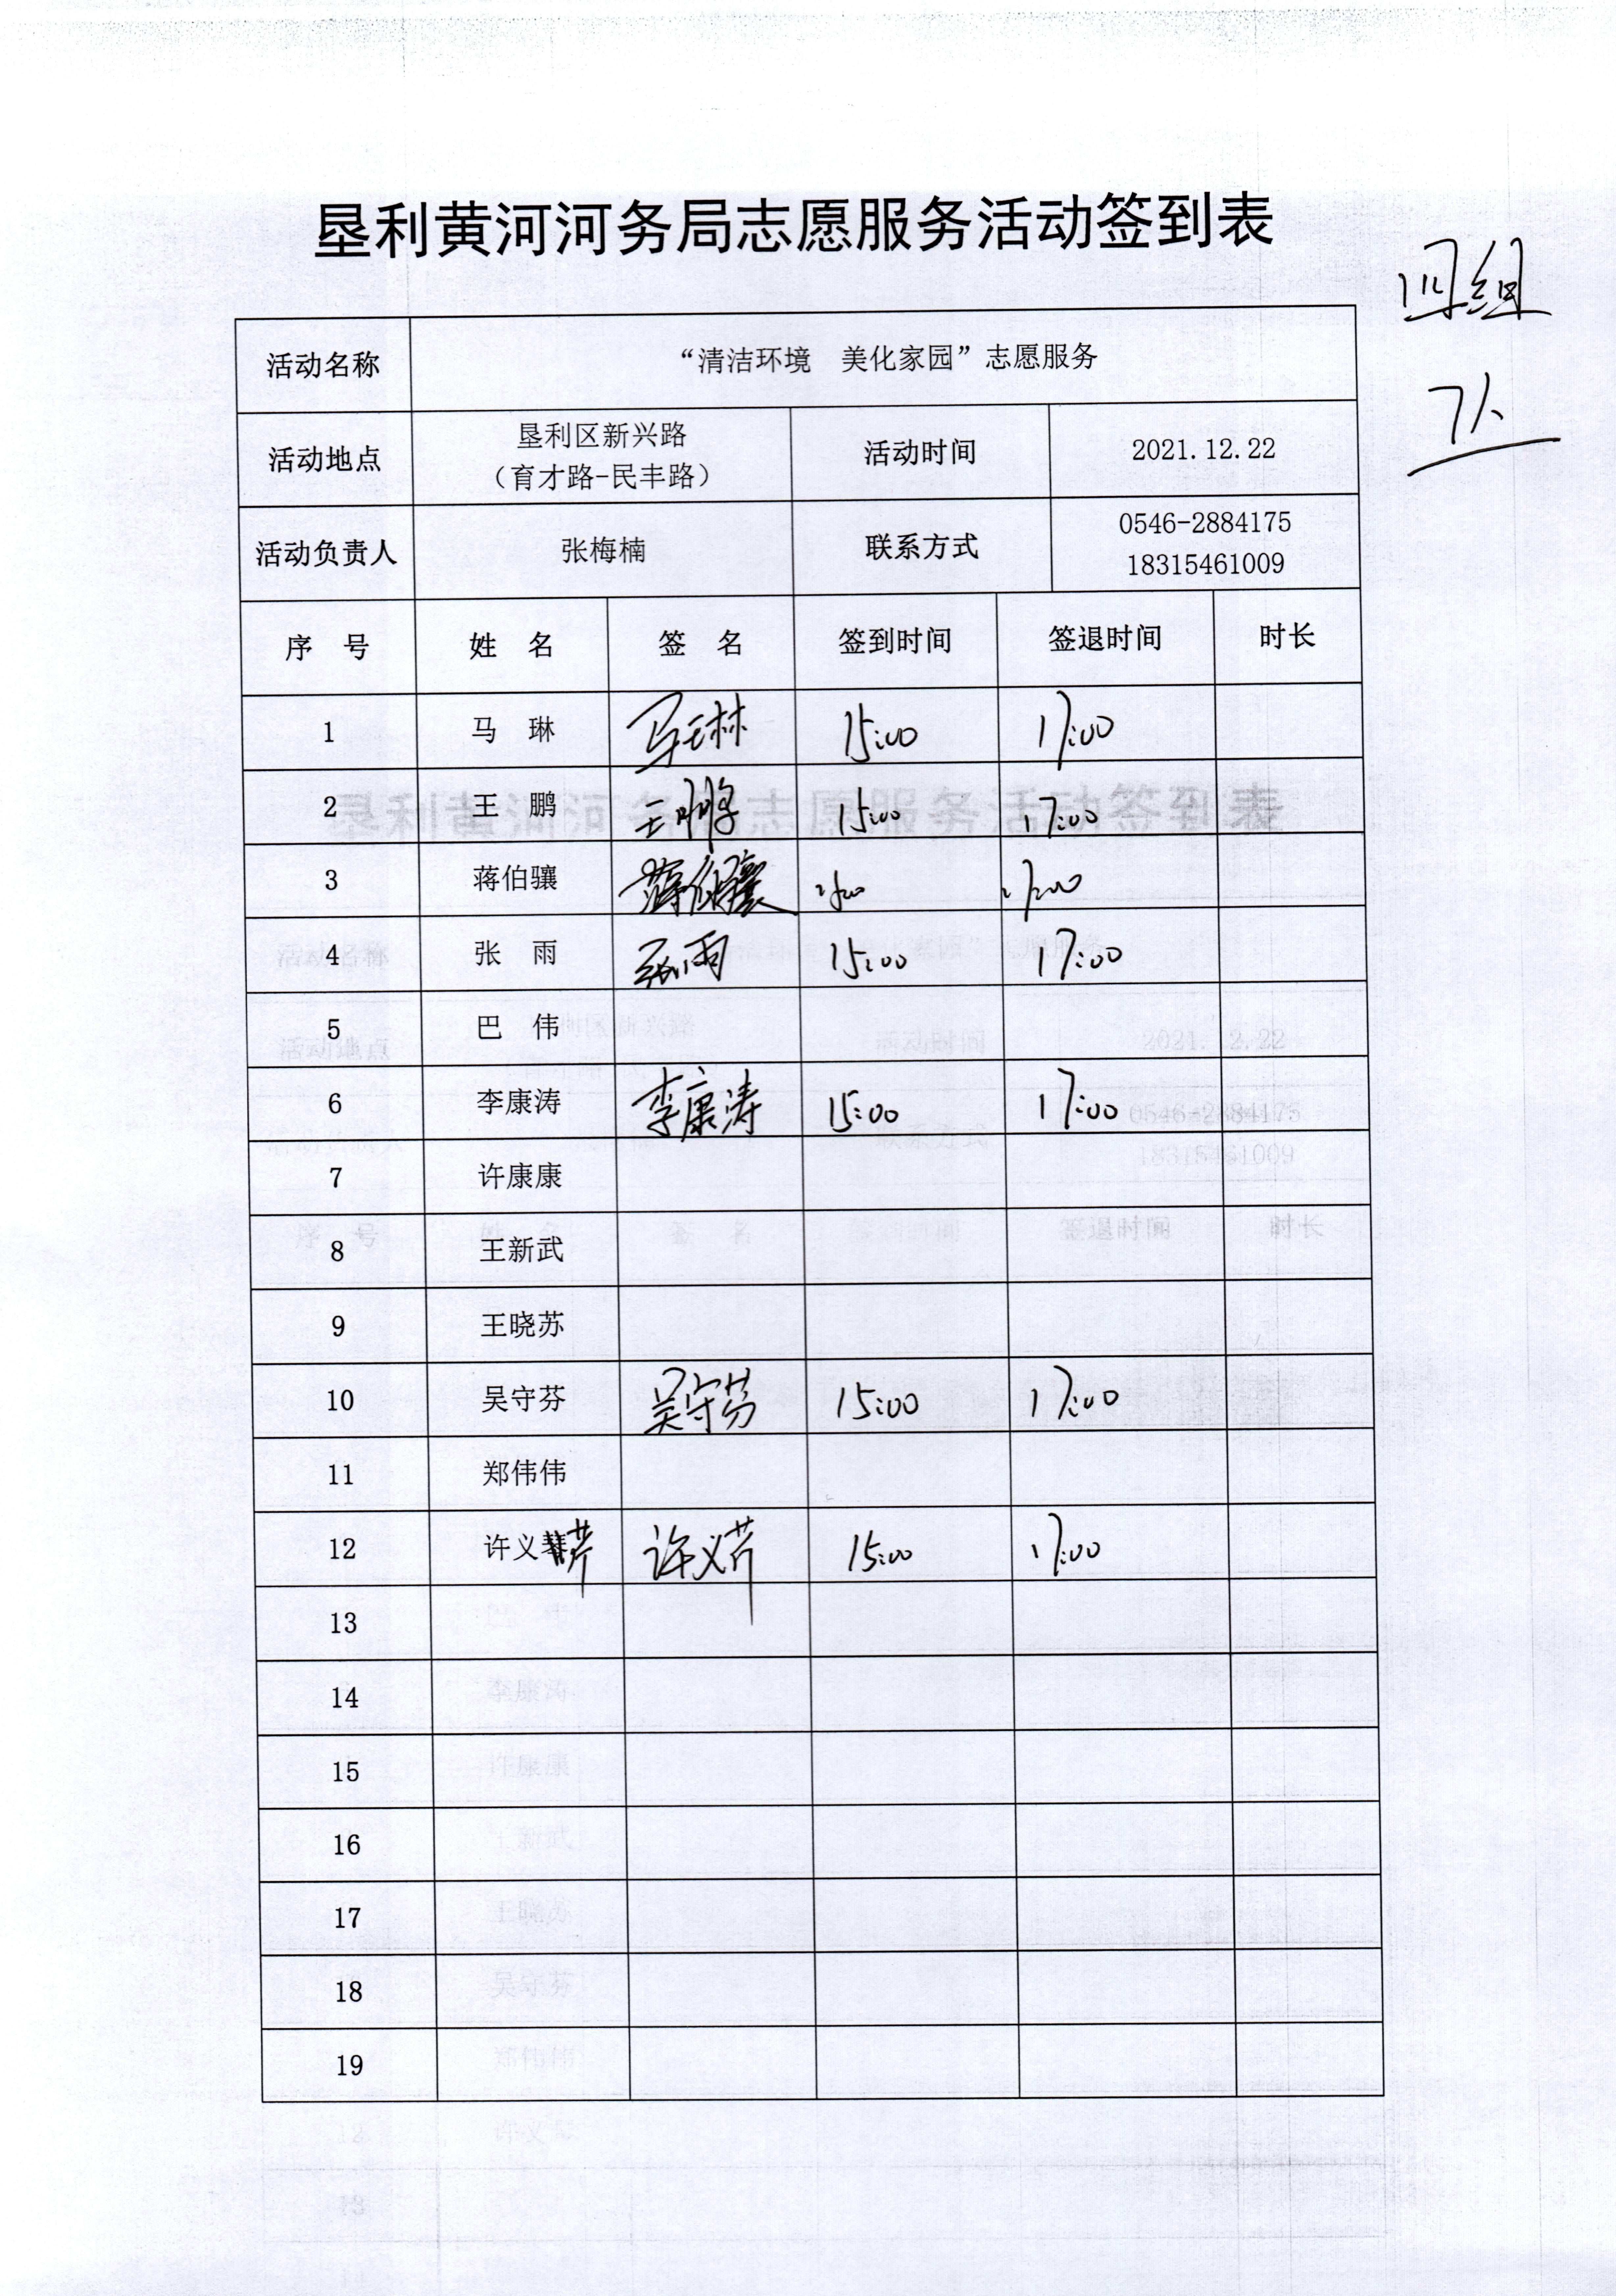 垦利黄河河务局志愿服务活动签到表
四组
7人
活动名称 “清洁环境 美化家园”志愿服务
活动地点 垦利区新兴路 （育才路-民丰路） 活动时间 2021.12.22
活动负责人 张梅楠 联系方式 0546-2884175 18315461009
序 号 姓 名 签 名 签到时间 签退时间 时长
1 马 琳 马琳 15:00 17:00
2 王 鹏 王鹏 15:00 17:00
3 蒋伯骧 蒋伯骧 15:00 17:00
4 张 雨 张雨 15:00 17:00
5 巴 伟
6 李康涛 李康涛 15:00 17:00
7 许康康
8 王新武
9 王晓苏
10 吴守芬 吴守芬 15:00 17:00
11 郑伟伟
12 许义芹 许义芹 15:00 17:00
13
14
15
16
17
18
19